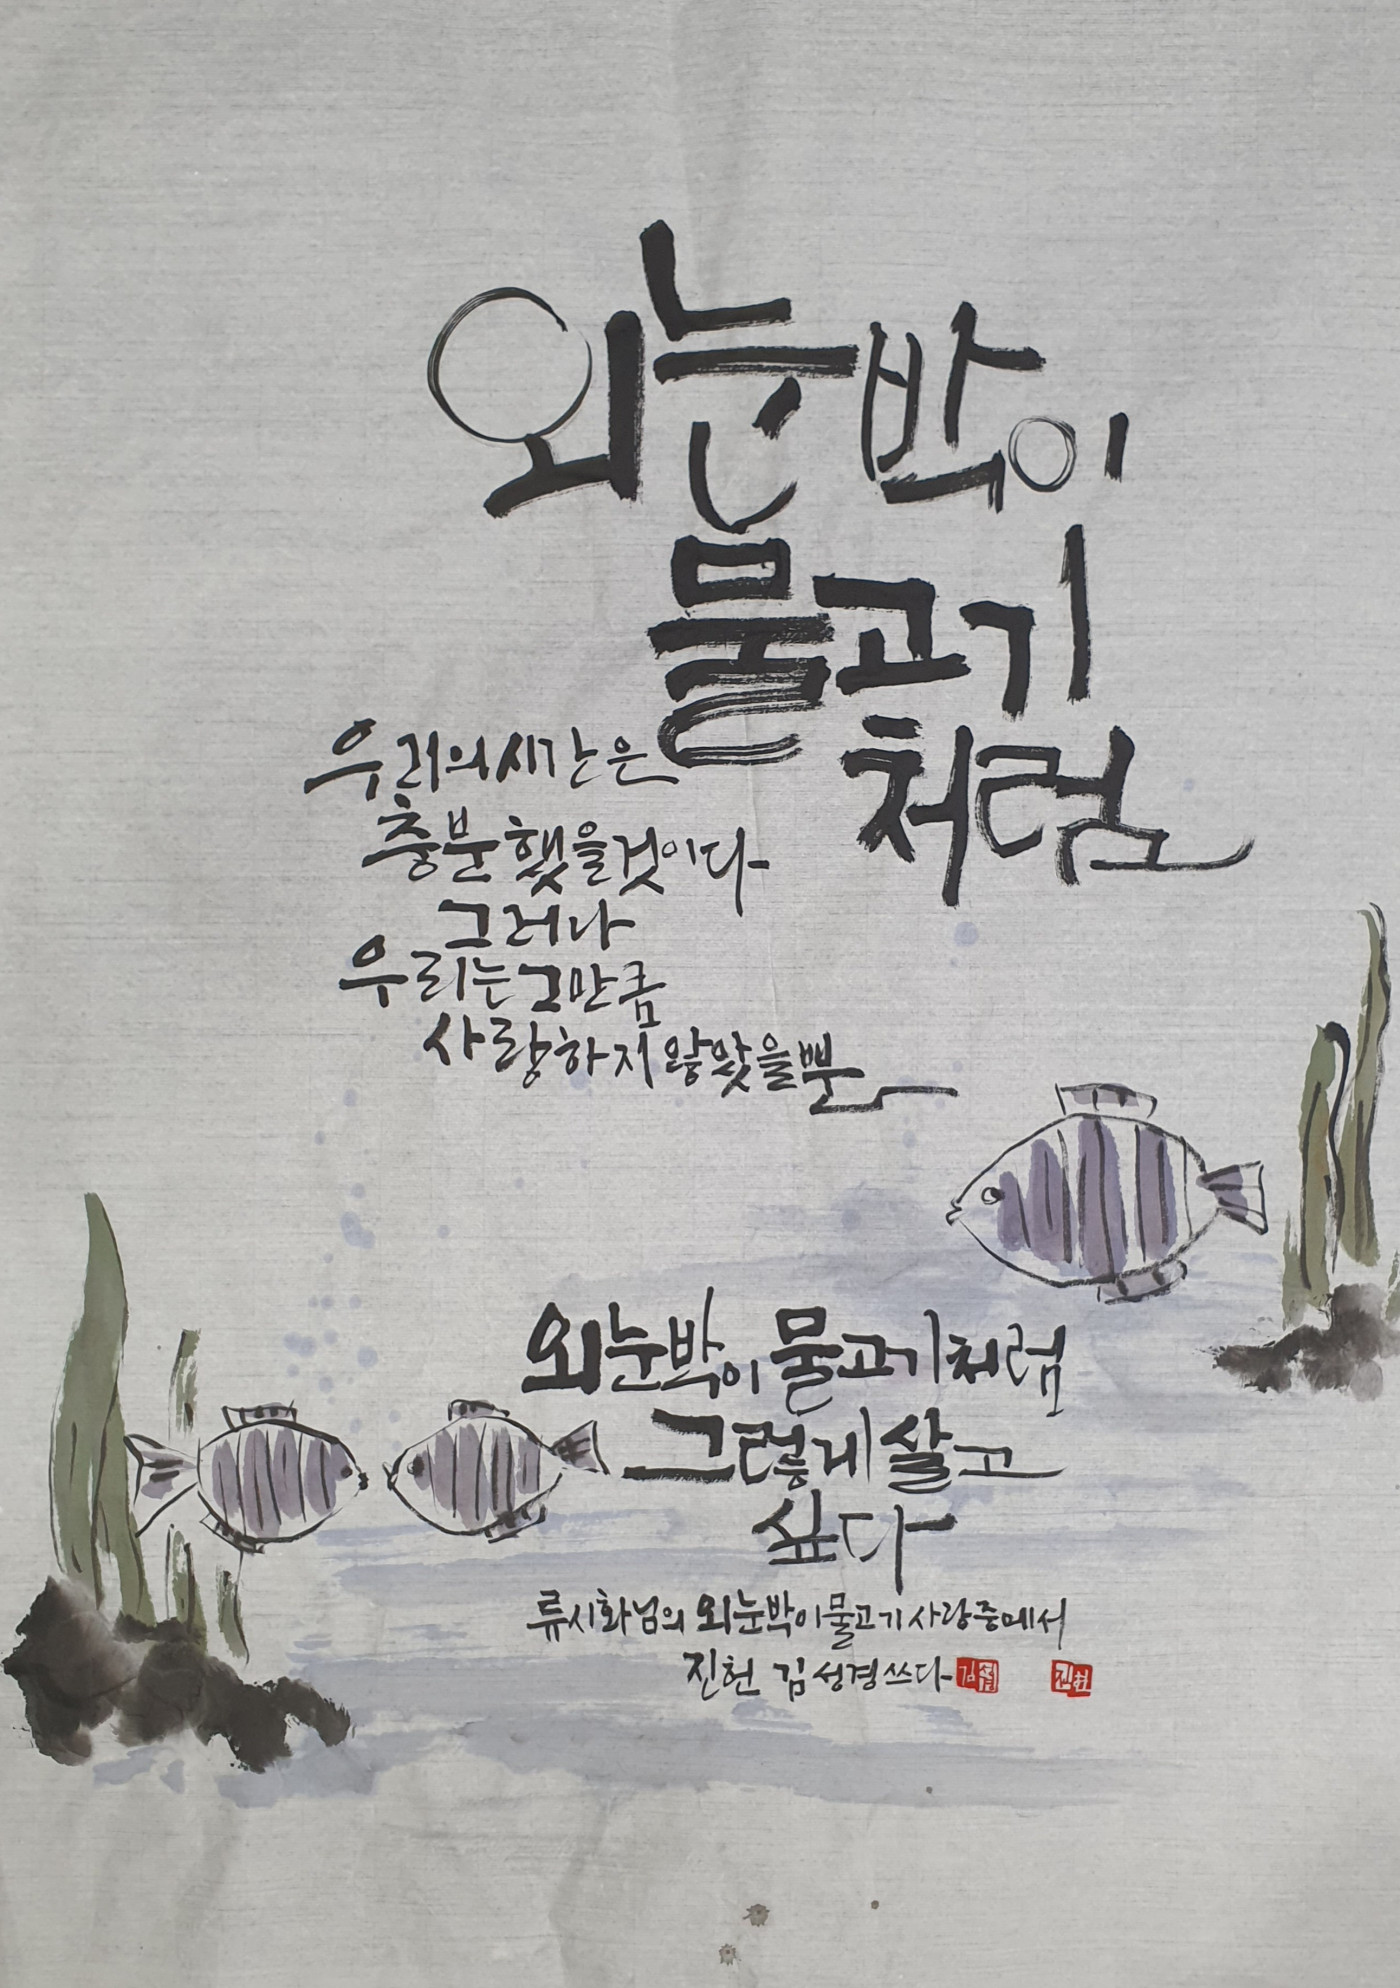 외눈박이
물고기
처럼
우리의 시간은
충분했을것이다
그러나
우리는 그만큼
사랑하지 않았을뿐
외눈박이 물고기처럼
그렇게 살고
싶다
류시화님의 외눈박이물고기사랑중에서
진헌 김성경쓰다